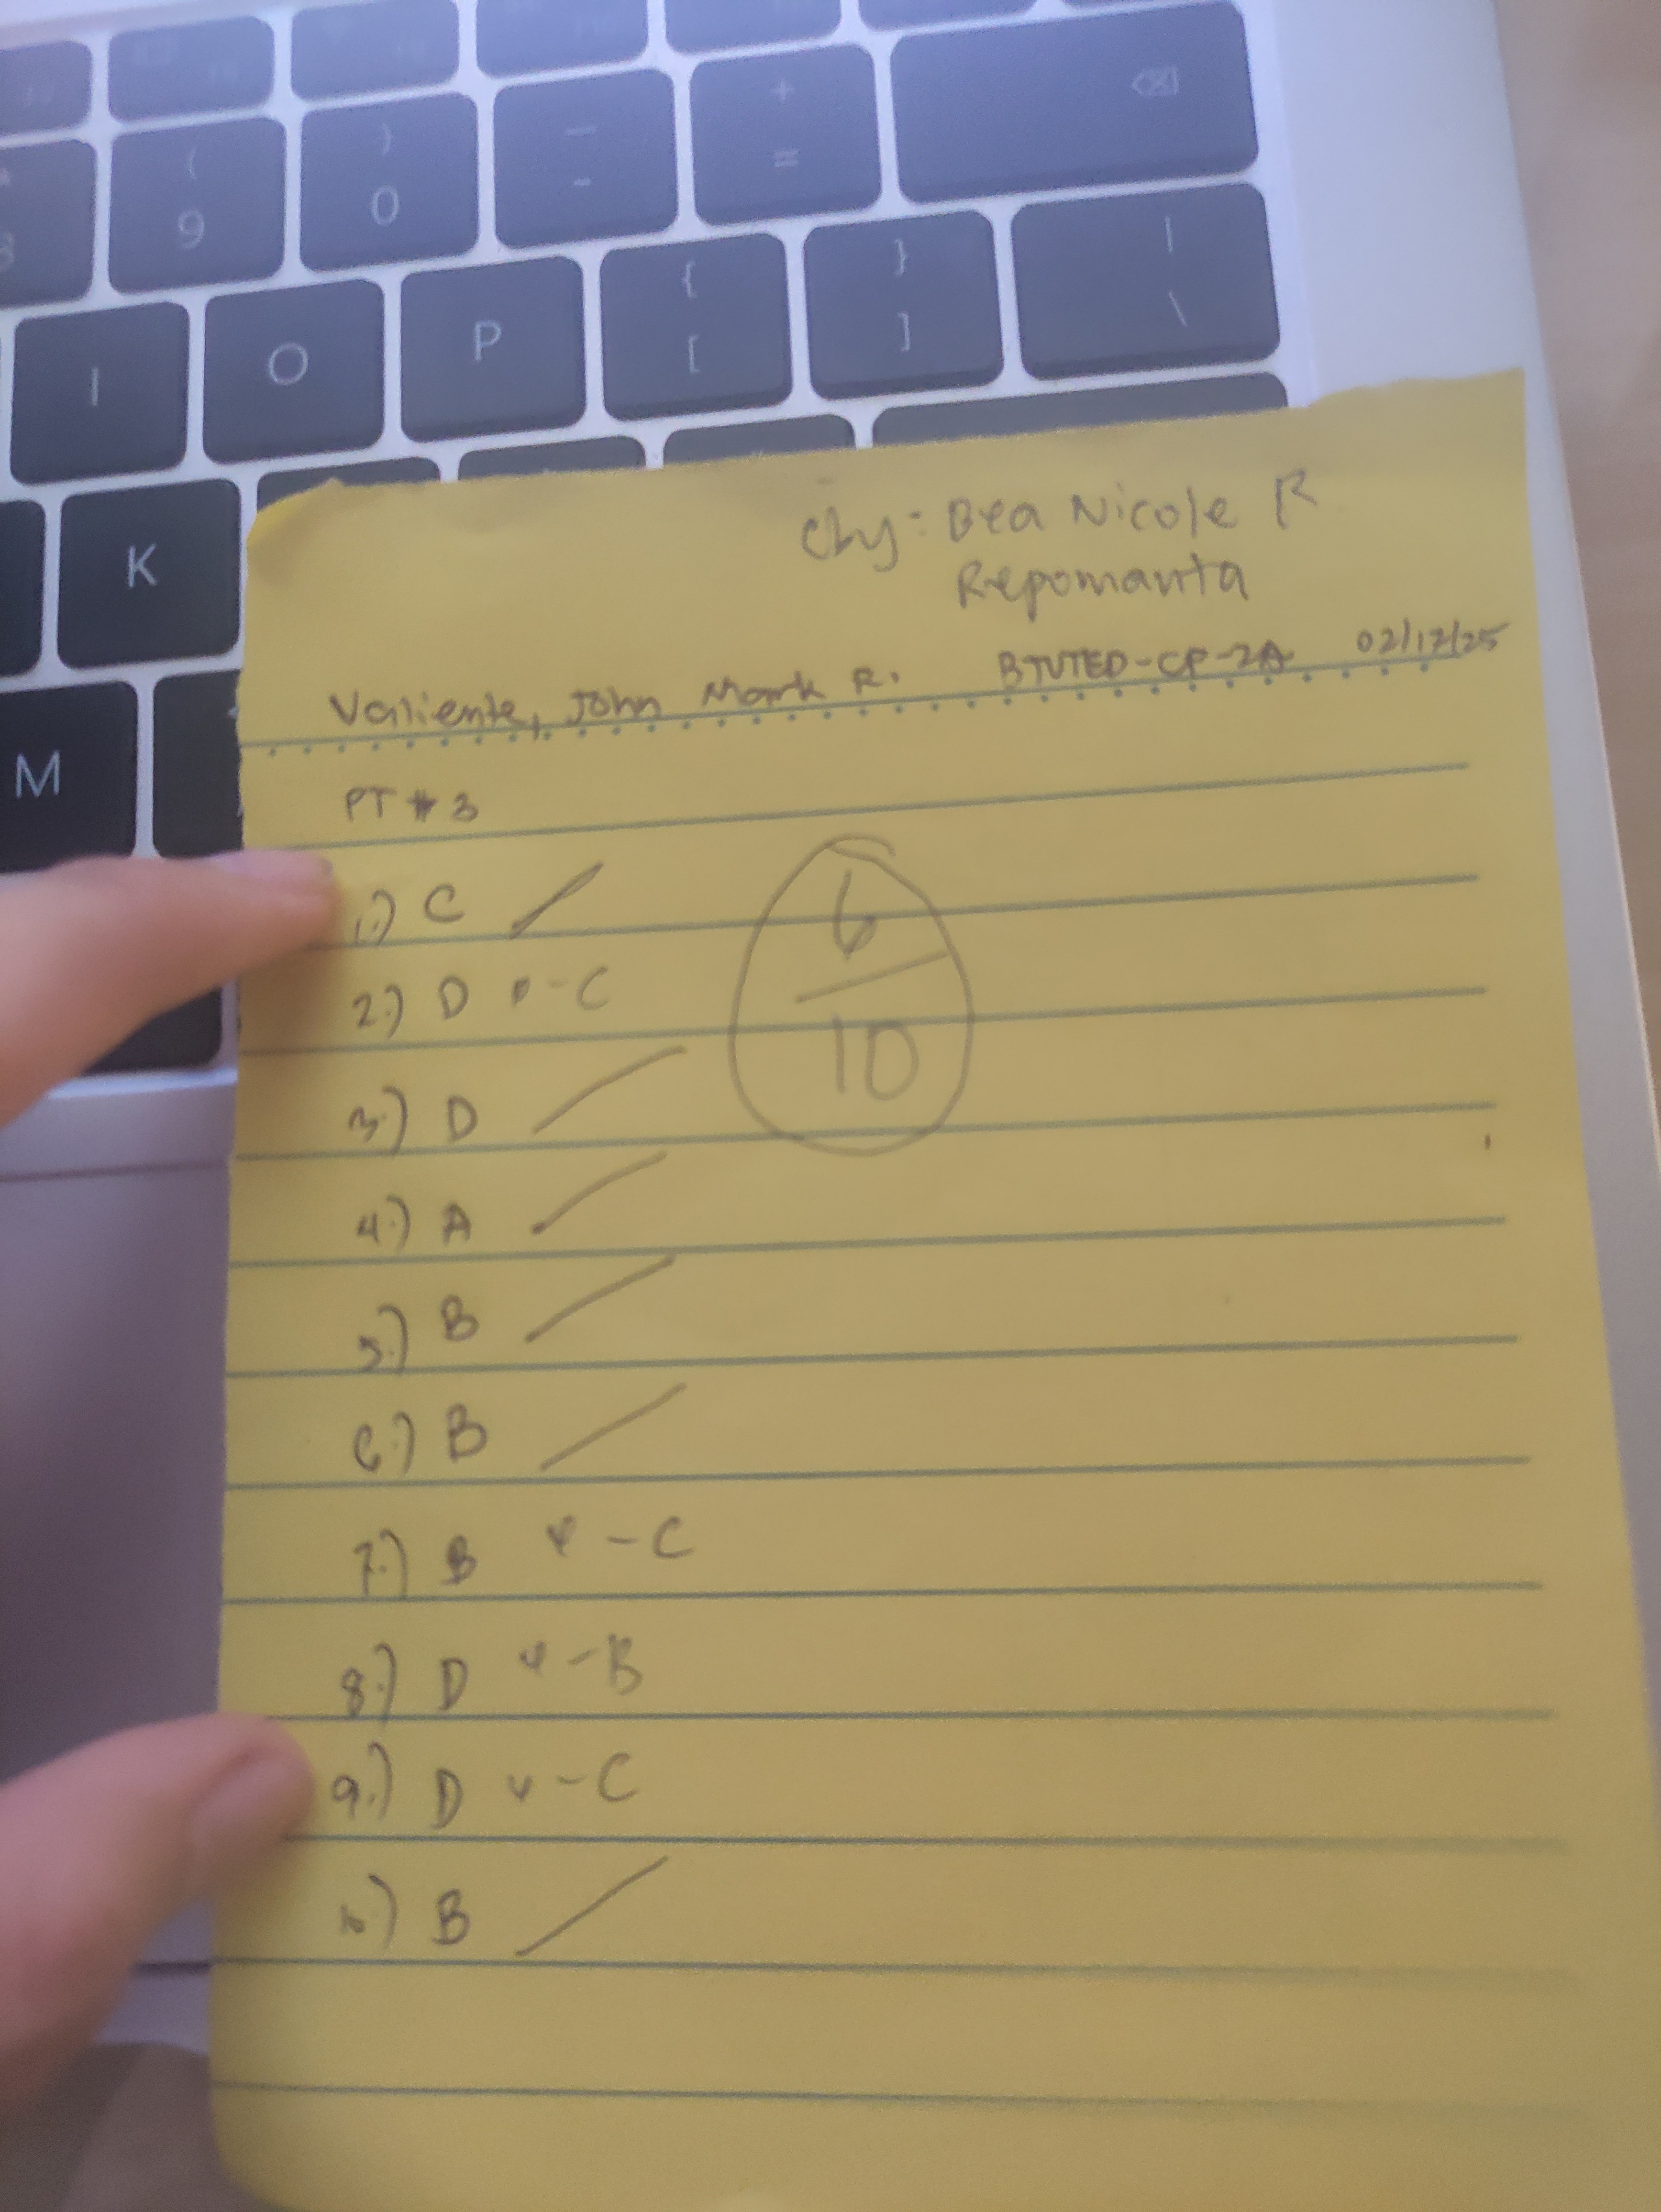 ( 9
) 0
— -
+ =
I
O
P
{ [
} ]
| \
K
M
Cby: Bea Nicole R.
Repomanta
Valiente, John Mark R. BTVTED-CP-2A 02/17/25
PT # 3
6
10
1.) C /
2.) D x - C
3.) D /
4.) A /
5.) B /
6.) B /
7.) B x - C
8.) D x - B
9.) D x - C
10.) B /